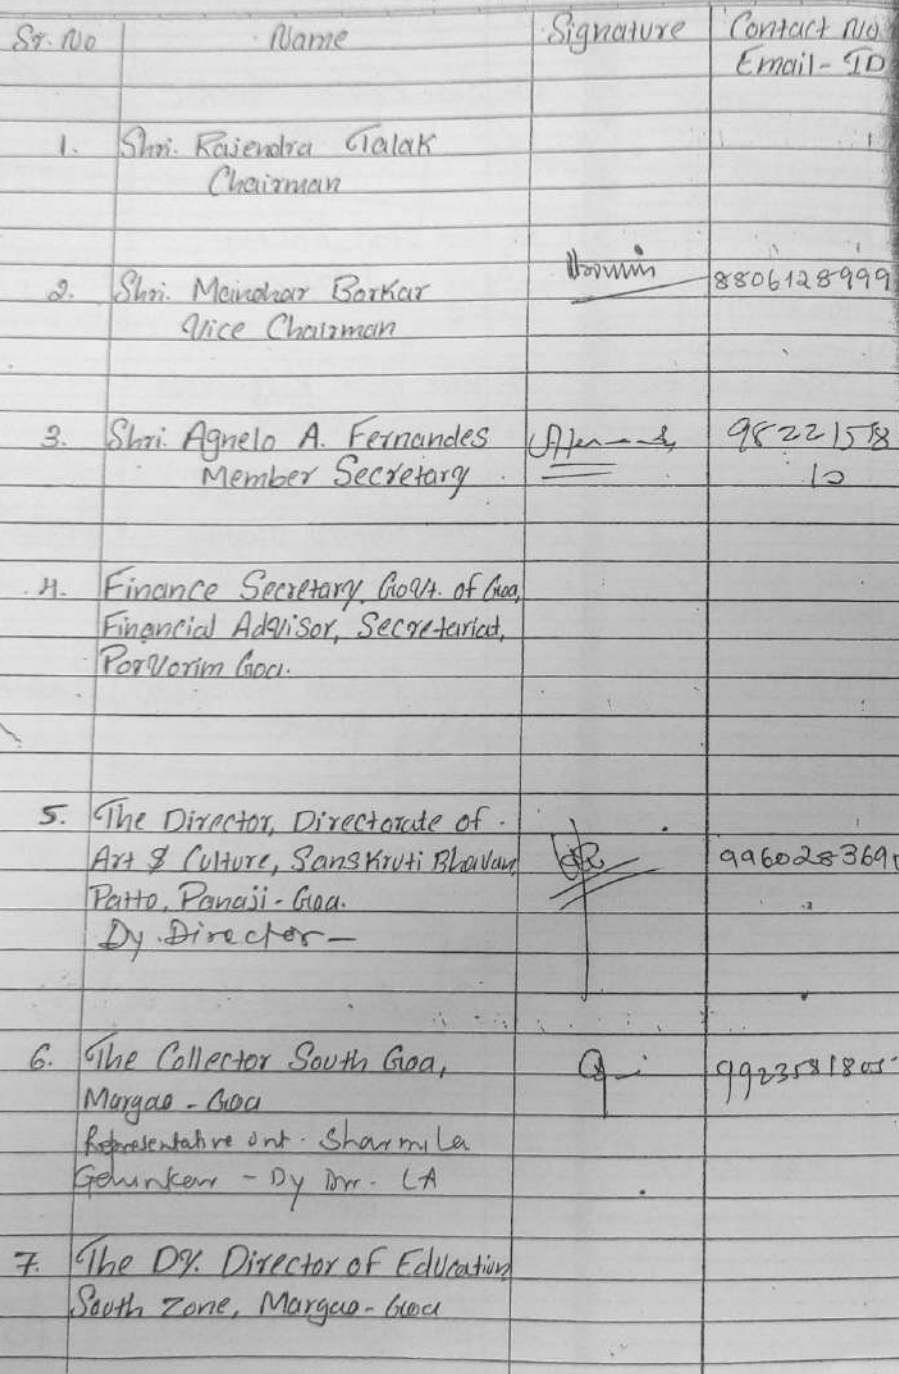 Sr. No Name Signature Contact No.
Email-ID
1. Shri. Rajendra Talak
Chairman
2. Shri. Mainohar Borkar 8806128999
Vice Chairman
3. Shri. Agnelo A. Fernandes 98221578
Member Secretary 10
4. Finance Secretary, Govt. of Goa,
Financial Advisor, Secretariat,
Porvorim Goa.
5. The Director, Directorate of
Art & Culture, Sanskruti Bhavan, 996028369
Patto, Panaji - Goa.
Dy. Director -
6. The Collector South Goa,
Margao - Goa
Representative Smt. Sharmila
- Dy Dir. LA
7. The Dy. Director of Education
South Zone, Margao - Goa